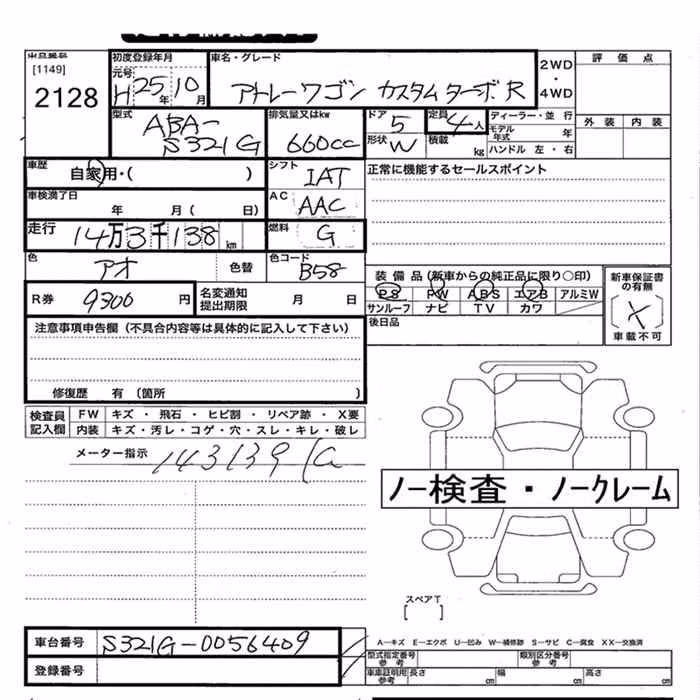 出品番号
[1149]
2128
初度登録年月
元号
H 25年 10月
車名・グレード
アトレーワゴン カスタムターボR
2WD
・
4WD
評価点
外装 内装
型式
ABA-
S321G
排気量又はkw
660cc
ドア
5
定員
4人
形状
W
積載
kg
ディーラー・並行
モデル年式 年
ハンドル 左・右
車歴
自家用・( )
シフト
IAT
正常に機能するセールスポイント
車検満了日
年 月( 日)
AC
AAC
走行
14万3千138km
燃料
G
色
アオ
色替
色コード
B58
R券
9300円
名変通知
提出期限
月 日
装備品(新車からの純正品に限り○印)
PS PW ABS エアB アルミW
サンルーフ ナビ TV カワ
新車保証書
の有無
[ X ]
車載不可
後日品
注意事項申告欄(不具合内容等は具体的に記入して下さい)
修復歴 有 (箇所 )
検査員
記入欄
FW キズ・飛石・ヒビ割・リペア跡・X要
内装 キズ・汚レ・コゲ・穴・スレ・キレ・破レ
メーター指示
143139
ノー検査・ノークレーム
スペアT
[ ]
車台番号
S321G-0056409
登録番号
A-キズ E-エクボ U-凹み W-補修跡 S-サビ C-腐食 XX-交換済
型式指定番号
参考
類別区分番号
参考
車庫証明用
参考
長さ cm 幅 cm 高さ cm